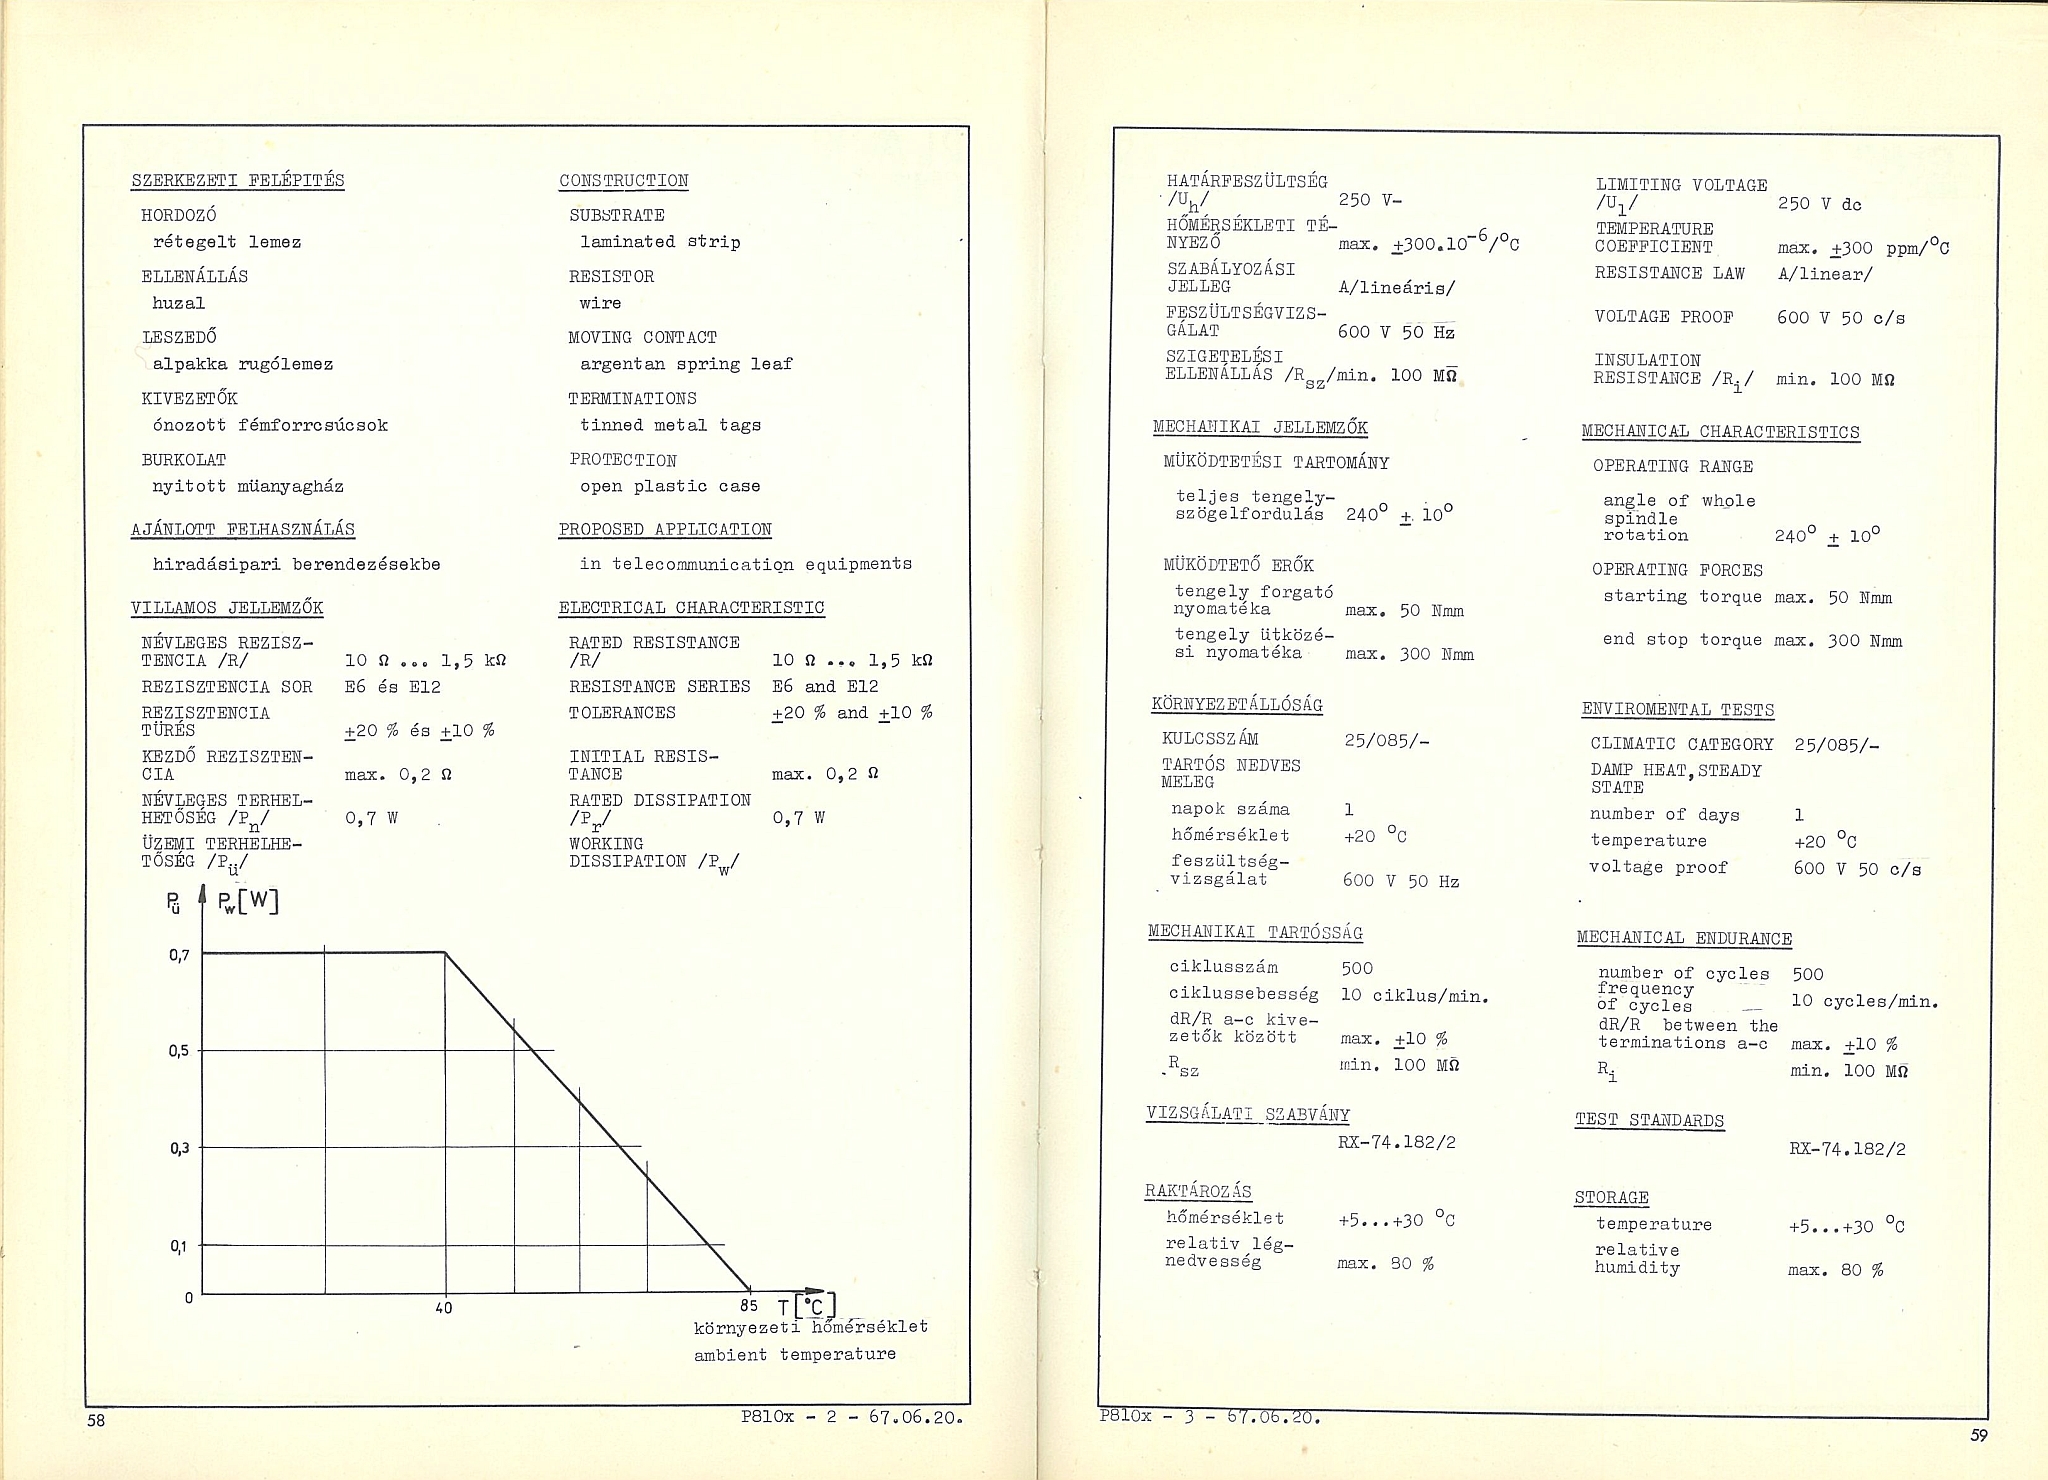 SZERKEZETI FELÉPITÉS
HORDOZÓ
rétegelt lemez
ELLENÁLLÁS
huzal
LESZEDŐ
alpakka rugólemez
KIVEZETŐK
ónozott fémforrcsúcsok
BURKOLAT
nyitott müanyagház
AJÁNLOTT FELHASZNÁLÁS
hiradásipari berendezésekbe
VILLAMOS JELLEMZŐK
NÉVLEGES REZISZ-
TENCIA /R/ 10 Ω ... 1,5 kΩ
REZISZTENCIA SOR E6 és E12
REZISZTENCIA
TÜRÉS ±20 % és ±10 %
KEZDŐ REZISZTEN-
CIA max. 0,2 Ω
NÉVLEGES TERHEL-
HETŐSÉG /Pn/ 0,7 W
ÜZEMI TERHELHE-
TŐSÉG /Pü/
CONSTRUCTION
SUBSTRATE
laminated strip
RESISTOR
wire
MOVING CONTACT
argentan spring leaf
TERMINATIONS
tinned metal tags
PROTECTION
open plastic case
PROPOSED APPLICATION
in telecommunication equipments
ELECTRICAL CHARACTERISTIC
RATED RESISTANCE
/R/ 10 Ω ... 1,5 kΩ
RESISTANCE SERIES E6 and E12
TOLERANCES ±20 % and ±10 %
INITIAL RESIS-
TANCE max. 0,2 Ω
RATED DISSIPATION
/Pr/ 0,7 W
WORKING
DISSIPATION /Pw/
Pü Pw[W]
0,7
0,5
0,3
0,1
0
40 85 T[°C]
környezeti hőmérséklet
ambient temperature
58
P810x - 2 - 67.06.20.
HATÁRFESZÜLTSÉG
/Uh/ 250 V-
HŐMÉRSÉKLETI TÉ-
NYEZŐ max. ±300.10⁻⁶/°C
SZABÁLYOZÁSI
JELLEG A/lineáris/
FESZÜLTSÉGVIZS-
GÁLAT 600 V 50 Hz
SZIGETELÉSI
ELLENÁLLÁS /Rsz/min. 100 MΩ
MECHANIKAI JELLEMZŐK
MÜKÖDTETÉSI TARTOMÁNY
teljes tengely-
szögelfordulás 240° ± 10°
MÜKÖDTETŐ ERŐK
tengely forgató
nyomatéka max. 50 Nmm
tengely ütközé-
si nyomatéka max. 300 Nmm
KÖRNYEZETÁLLÓSÁG
KULCSSZÁM 25/085/-
TARTÓS NEDVES
MELEG
napok száma 1
hőmérséklet +20 °C
feszültség-
vizsgálat 600 V 50 Hz
MECHANIKAI TARTÓSSÁG
ciklusszám 500
ciklussebesség 10 ciklus/min.
dR/R a-c kive-
zetők között max. ±10 %
Rsz min. 100 MΩ
VIZSGÁLATI SZABVÁNY
RX-74.182/2
RAKTÁROZÁS
hőmérséklet +5...+30 °C
relativ lég-
nedvesség max. 80 %
LIMITING VOLTAGE
/Ul/ 250 V dc
TEMPERATURE
COEFFICIENT max. ±300 ppm/°C
RESISTANCE LAW A/linear/
VOLTAGE PROOF 600 V 50 c/s
INSULATION
RESISTANCE /Ri/ min. 100 MΩ
MECHANICAL CHARACTERISTICS
OPERATING RANGE
angle of whole
spindle
rotation 240° ± 10°
OPERATING FORCES
starting torque max. 50 Nmm
end stop torque max. 300 Nmm
ENVIROMENTAL TESTS
CLIMATIC CATEGORY 25/085/-
DAMP HEAT,STEADY
STATE
number of days 1
temperature +20 °C
voltage proof 600 V 50 c/s
MECHANICAL ENDURANCE
number of cycles 500
frequency
of cycles 10 cycles/min.
dR/R between the
terminations a-c max. ±10 %
Ri min. 100 MΩ
TEST STANDARDS
RX-74.182/2
STORAGE
temperature +5...+30 °C
relative
humidity max. 80 %
P810x - 3 - 67.06.20.
59